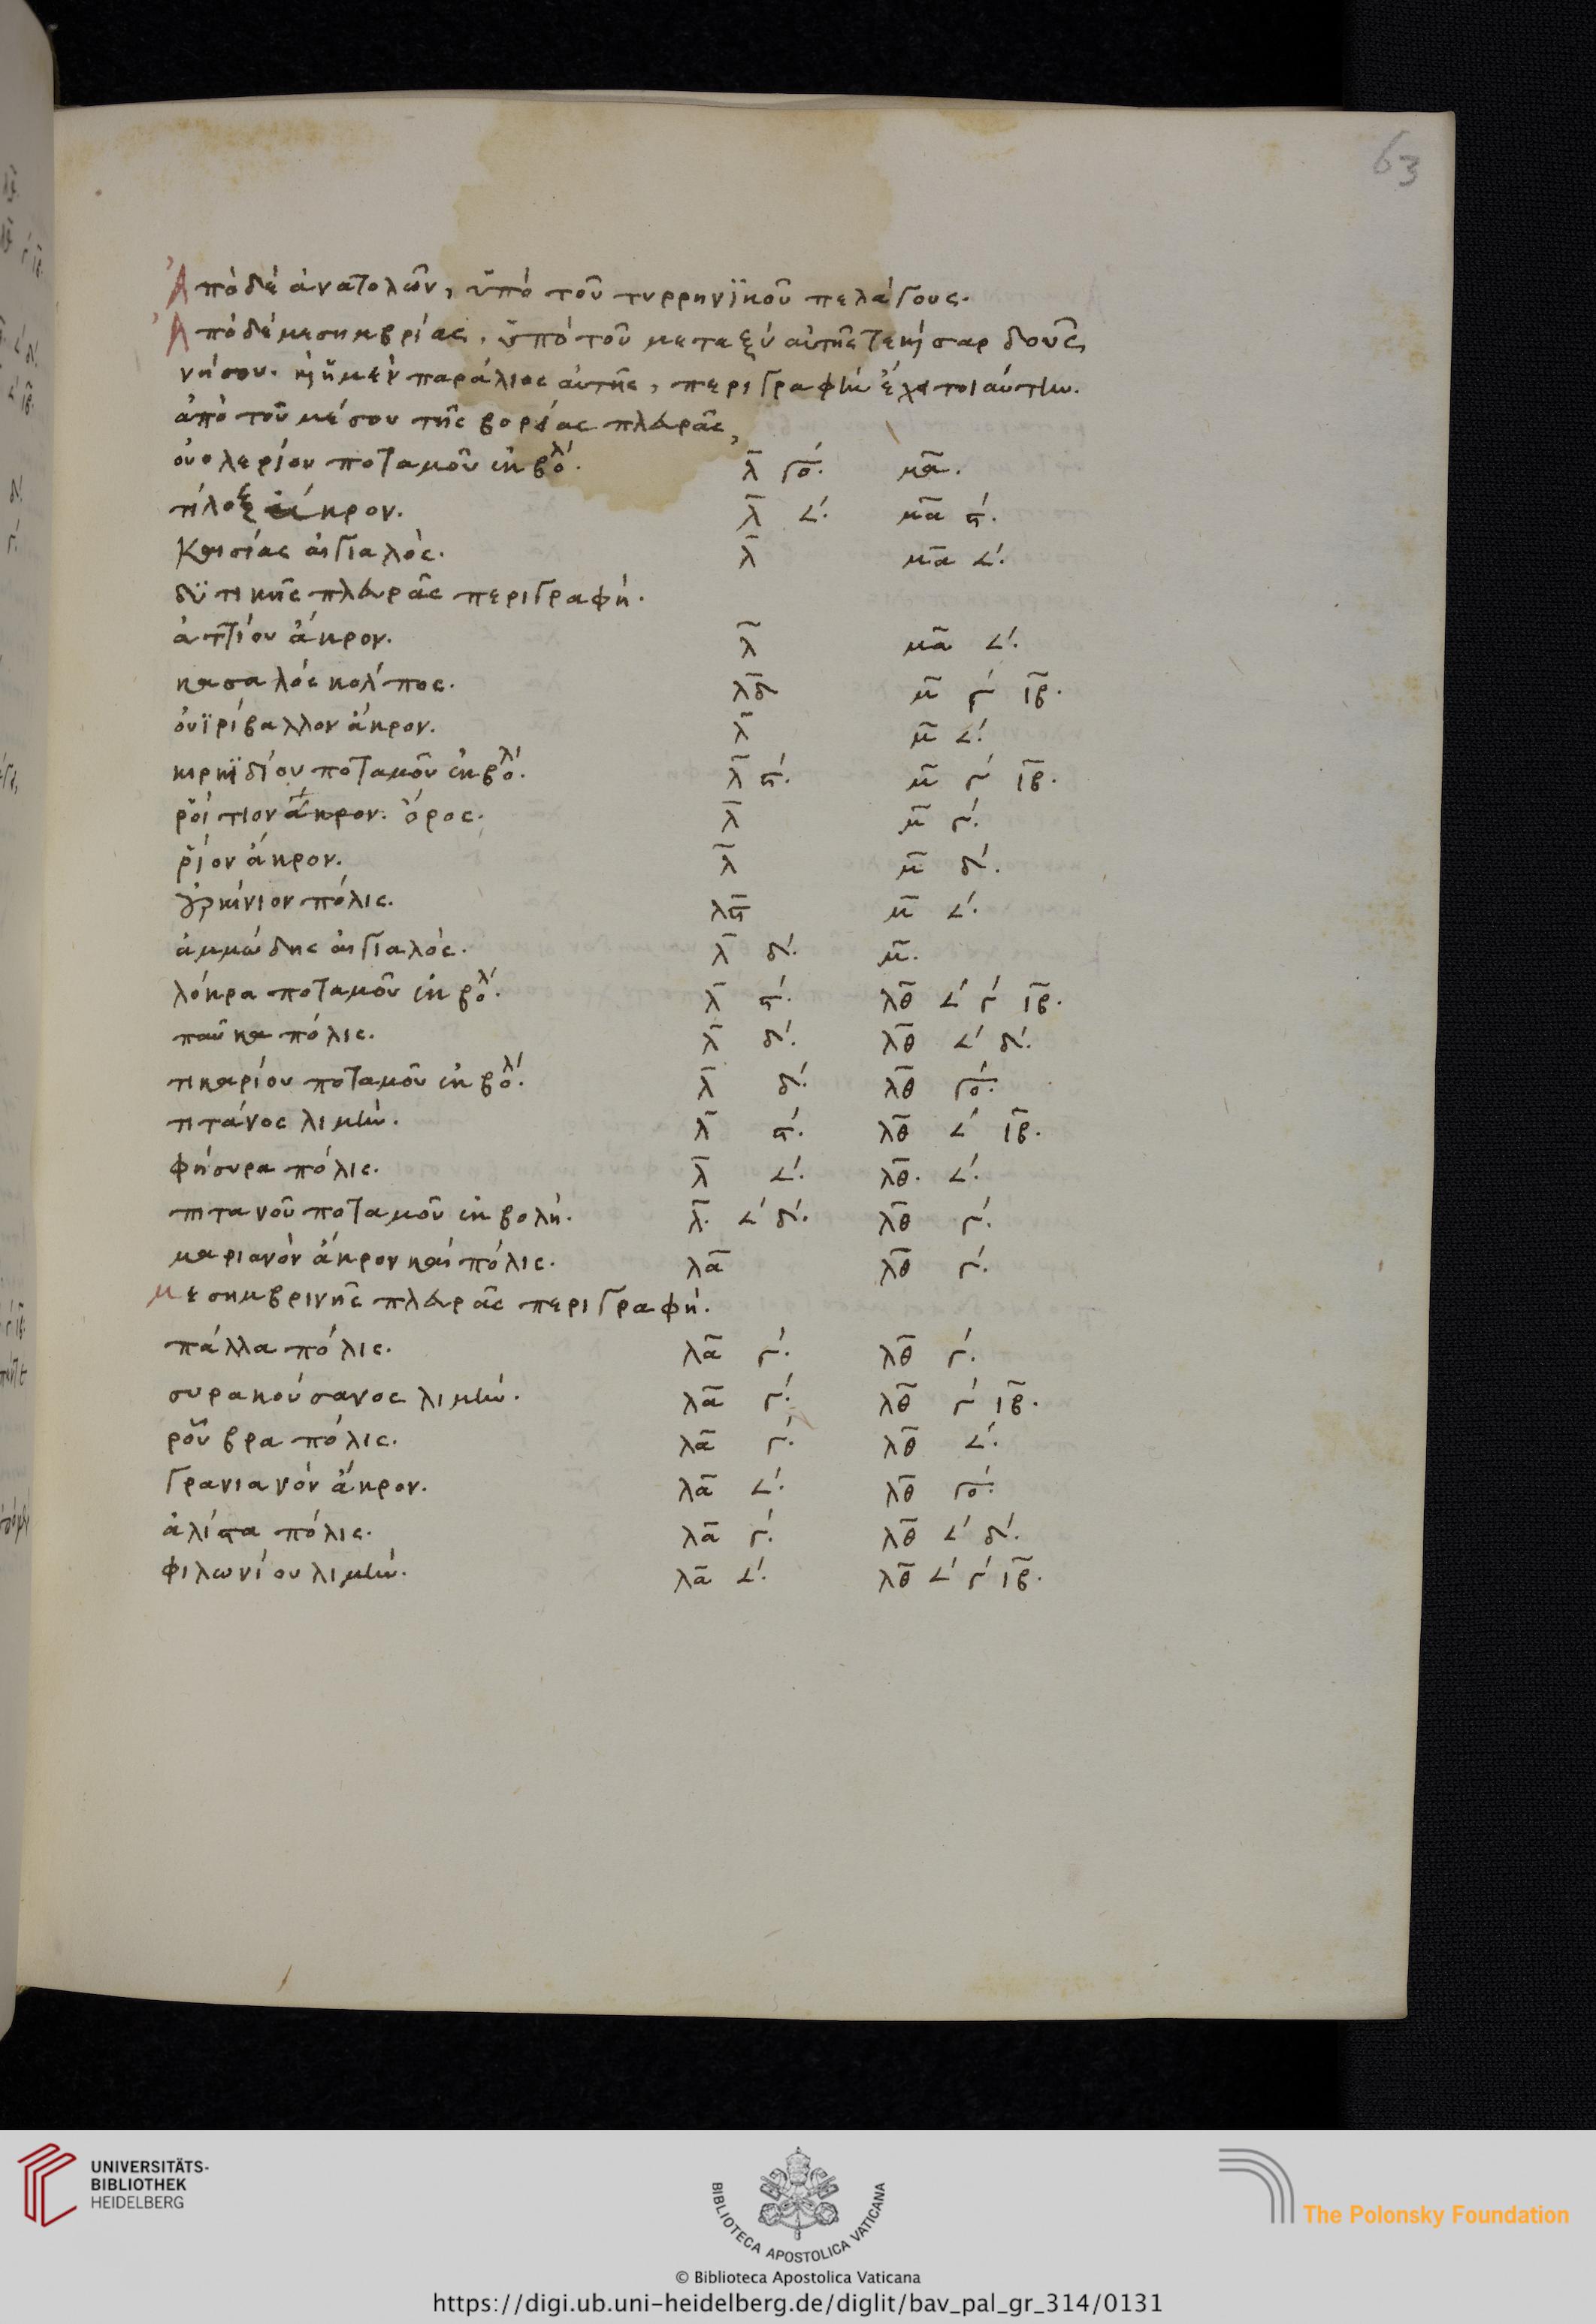 63
Ἀπὸ δὲ ἀνατολῶν, ὑπὸ τοῦ τυρρηνϊκοῦ πελάγους.
Ἀπὸ δὲ μεσημβρίας, ὑπὸ τοῦ μεταξὺ αὐτῆς τε καὶ σαρδοῦς
νήσου. καὶ ἡ μὲν παράλιος αὐτῆς, περιγραφὴν ἔχει τοιαύτην.
ἀπὸ τοῦ μέσου τῆς βορείας πλευρᾶς,
οὐολερίου ποταμοῦ ἐκβολ. λ̅ γο. μα̅.
τίλοξ ἄκρον. λ̅ ∠΄. μα̅ ϛ΄.
Καισίας αἰγιαλός. λ̅ μα̅ ∠΄.
δϋτικῆς πλευρᾶς περιγραφή.
ἀττίου ἄκρον. λ̅ μα̅ ∠΄.
κασαλὸς κόλπος. λ̅δ μ̅ γ΄ ιβ̅.
οὐϊρίβαλλον ἄκρον. λ̅ μ̅ ∠΄.
κιρκϊδίου ποταμοῦ ἐκβολ. λ̅ ϛ΄. μ̅ γ΄ ιβ̅.
ῥοίτιον ἄκρον. ὄρος. λ̅ μ̅ γ΄.
ῥίον ἄκρον. λ̅ μ̅ δ΄.
οὐρκίνιον πόλις. λϛ̅ μ̅ ∠΄.
ἀμμώδης αἰγιαλός. λ̅ δ΄. μ̅.
λόκρα ποταμοῦ ἐκβολ. λ̅ ϛ΄. λθ̅ ∠΄ γ΄ ιβ̅.
παῦκα πόλις. λ̅ δ΄. λθ̅ ∠΄ δ΄.
τικαρίου ποταμοῦ ἐκβολ. λ̅ δ΄. λθ̅ γο.
τιτάνος λιμήν. λ̅ ϛ΄. λθ̅ ∠΄ ιβ̅.
φήσυρα πόλις. λ̅ ∠΄. λθ̅. ∠΄.
πιτανοῦ ποταμοῦ ἐκβολή. λ̅. ∠΄ δ΄. λθ̅ γ΄.
μαριανὸν ἄκρον καὶ πόλις. λα̅ λθ̅ γ΄.
μεσημβρινῆς πλευρᾶς περιγραφή.
πάλλα πόλις. λα̅ γ΄. λθ̅ γ΄.
συρακούσανος λιμήν. λα̅ γ΄. λθ̅ γ΄ ιβ̅.
ῥοῦβρα πόλις. λα̅ γ΄. λθ̅ ∠΄.
γρανιανὸν ἄκρον. λα̅ ∠΄. λθ̅ γο.
ἀλίστα πόλις. λα̅ γ΄. λθ̅ ∠΄ δ΄.
φιλωνίου λιμήν. λα̅ ∠΄. λθ̅ ∠΄ γ΄ ιβ̅.
UNIVERSITÄTS-
BIBLIOTHEK
HEIDELBERG
BIBLIOTECA APOSTOLICA VATICANA
The Polonsky Foundation
© Biblioteca Apostolica Vaticana
https://digi.ub.uni-heidelberg.de/diglit/bav_pal_gr_314/0131